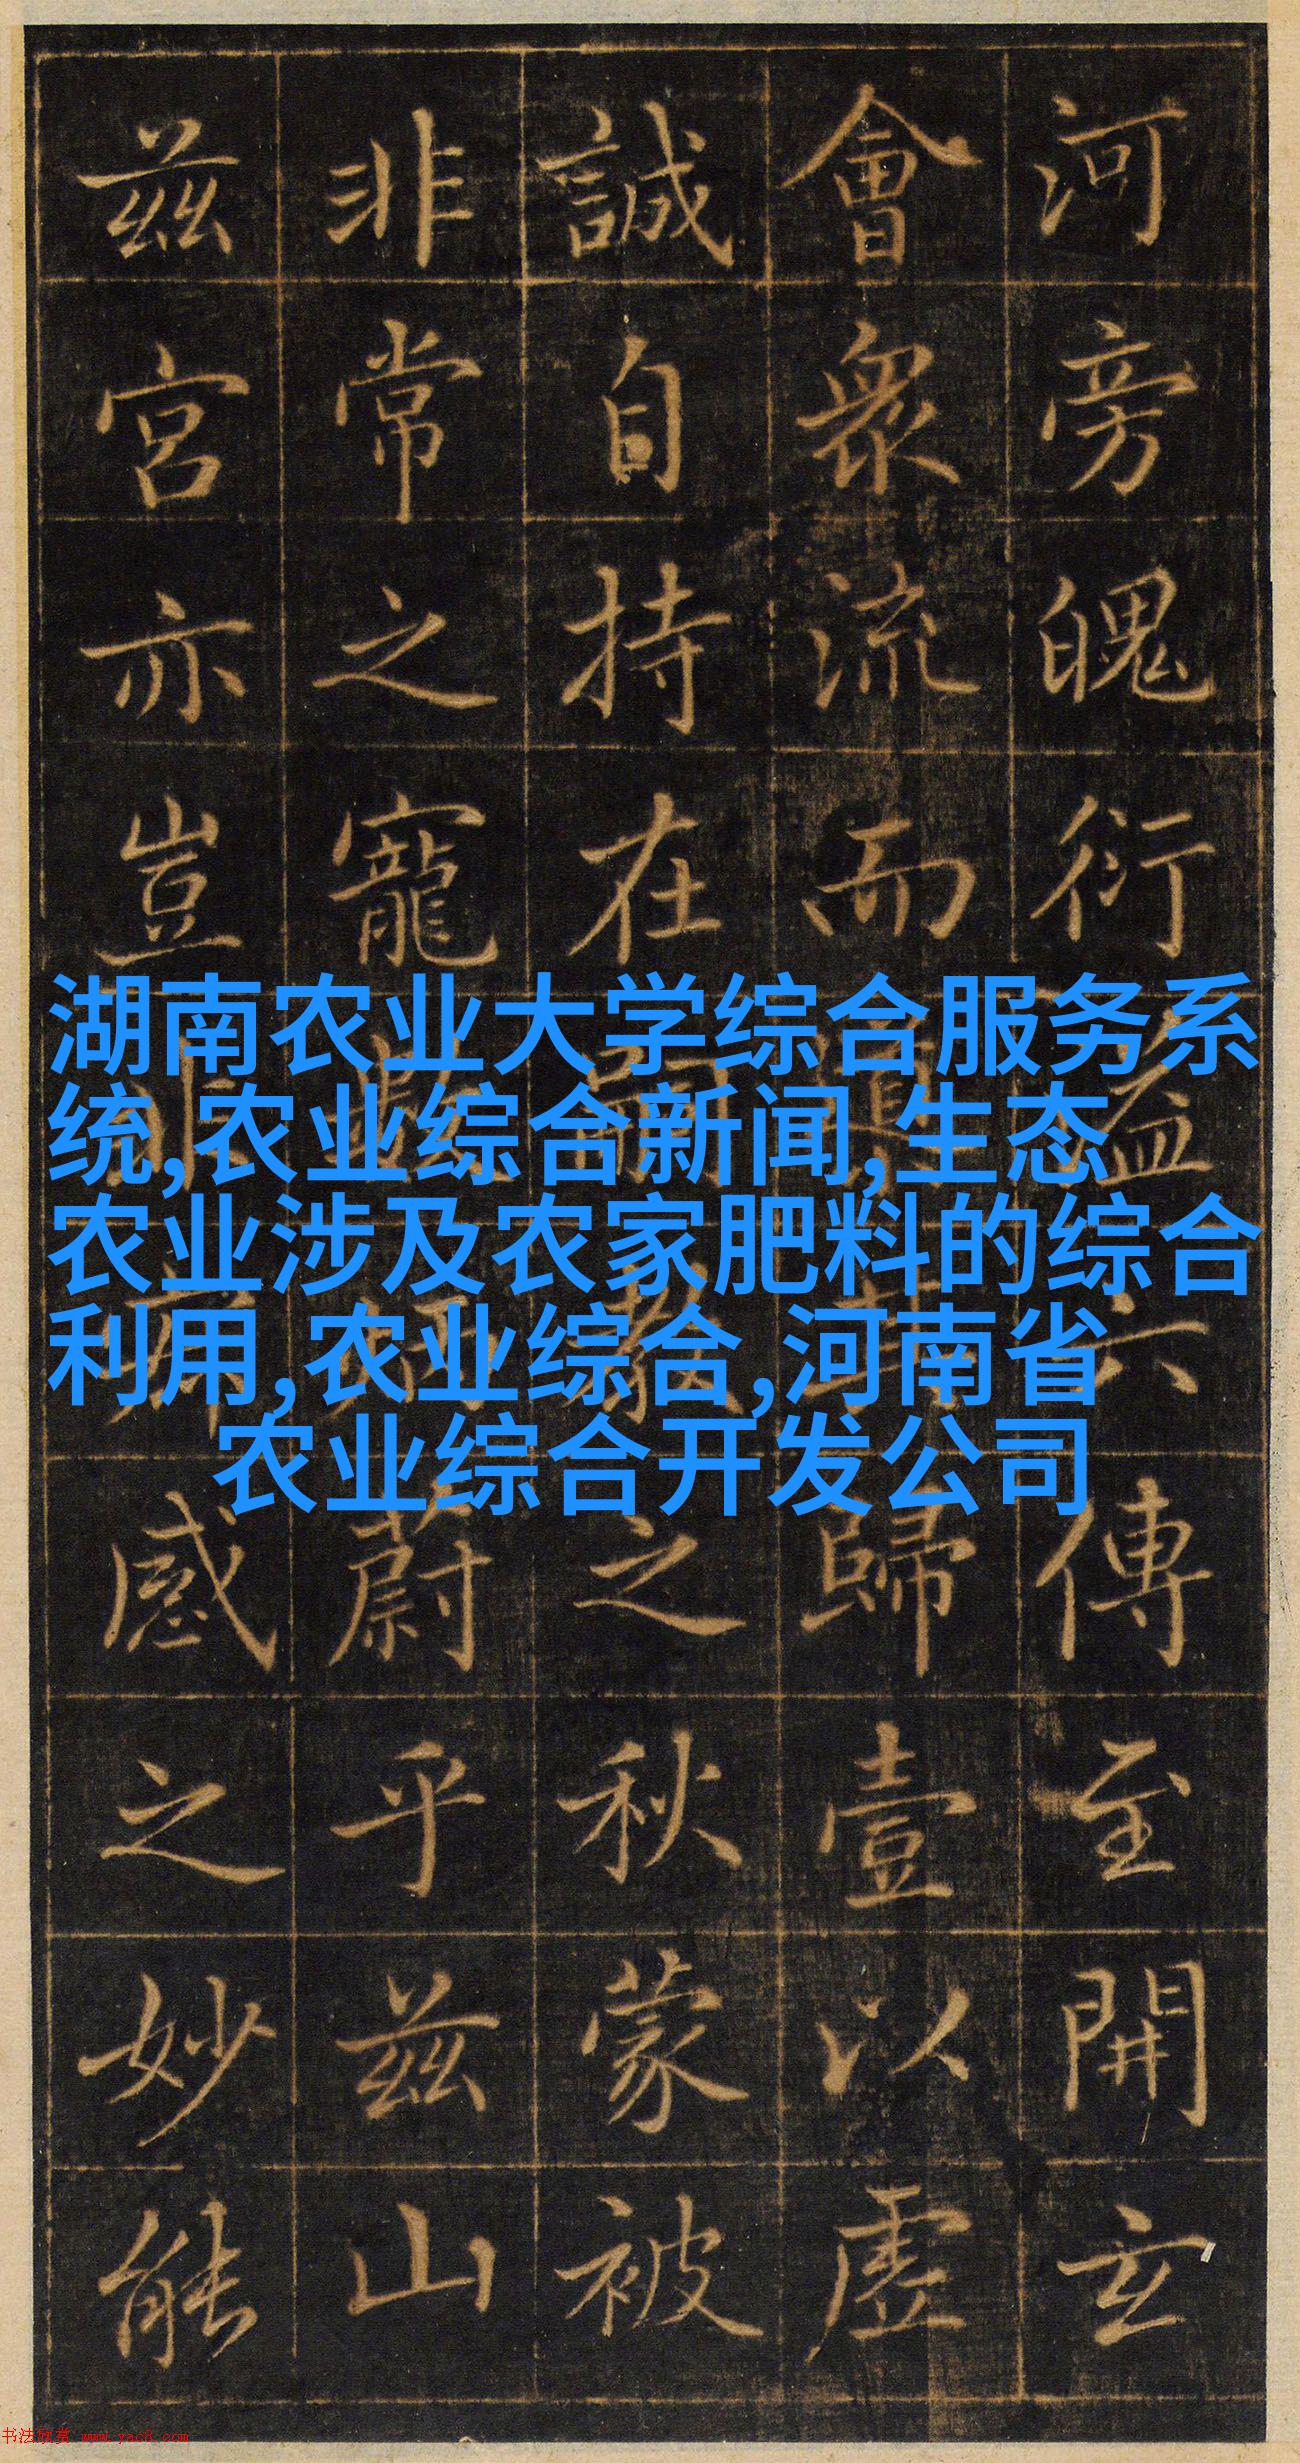 河旁魄衍六傳至開玄
會眾流而歸壹以虛
誠自持在嗣教之秋蒙被
非常之寵蔚乎茲山
茲宮亦豈感之妙能
湖南农业大学综合服务系
统,农业综合新闻,生态
农业涉及农家肥料的综合
利用,农业综合,河南省
农业综合开发公司
书法欣赏 www.yac8.com